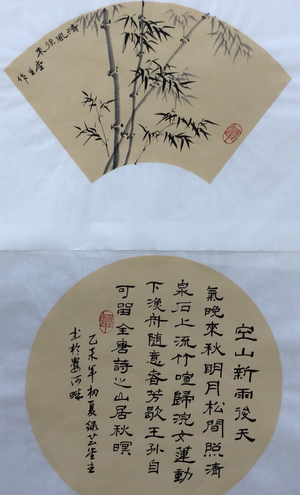 清風徐來
堂主
作
空山新雨後天
氣晚來秋明月松間照清
泉石上流竹喧歸浣女蓮動
下漁舟隨意春芳歇王孫自
可留全唐詩之山居秋暝
乙未年初夏芸堂主
書於婁河畔